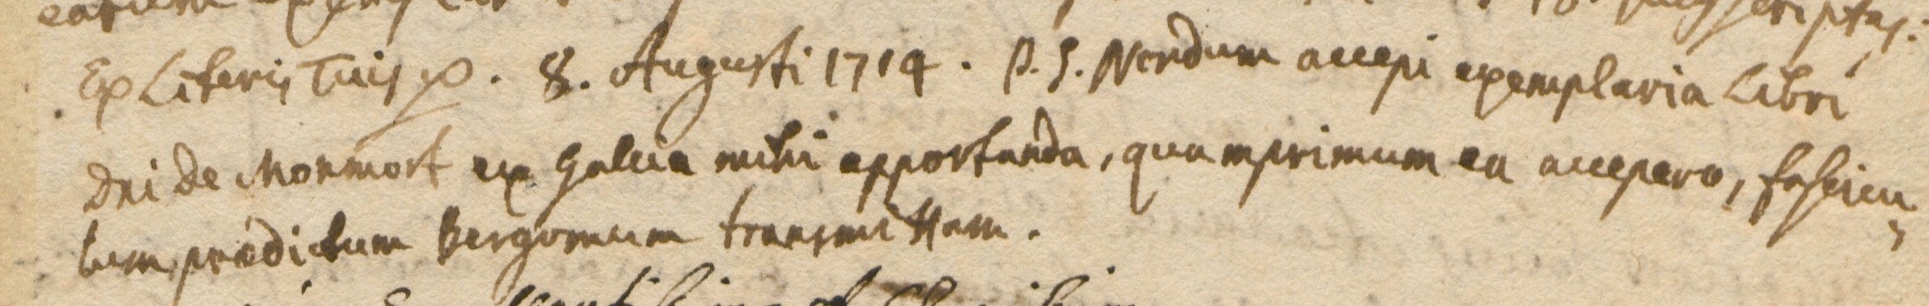 Ex Literis Tuis p. 8. Augusti 1714. P.S. Nondum accepi exemplaria Libri
Dni de Monmort ex Galcia mihi apportanda, quamprimum ea accepero, fascicu
lum prædictum Bergomum transmittam.